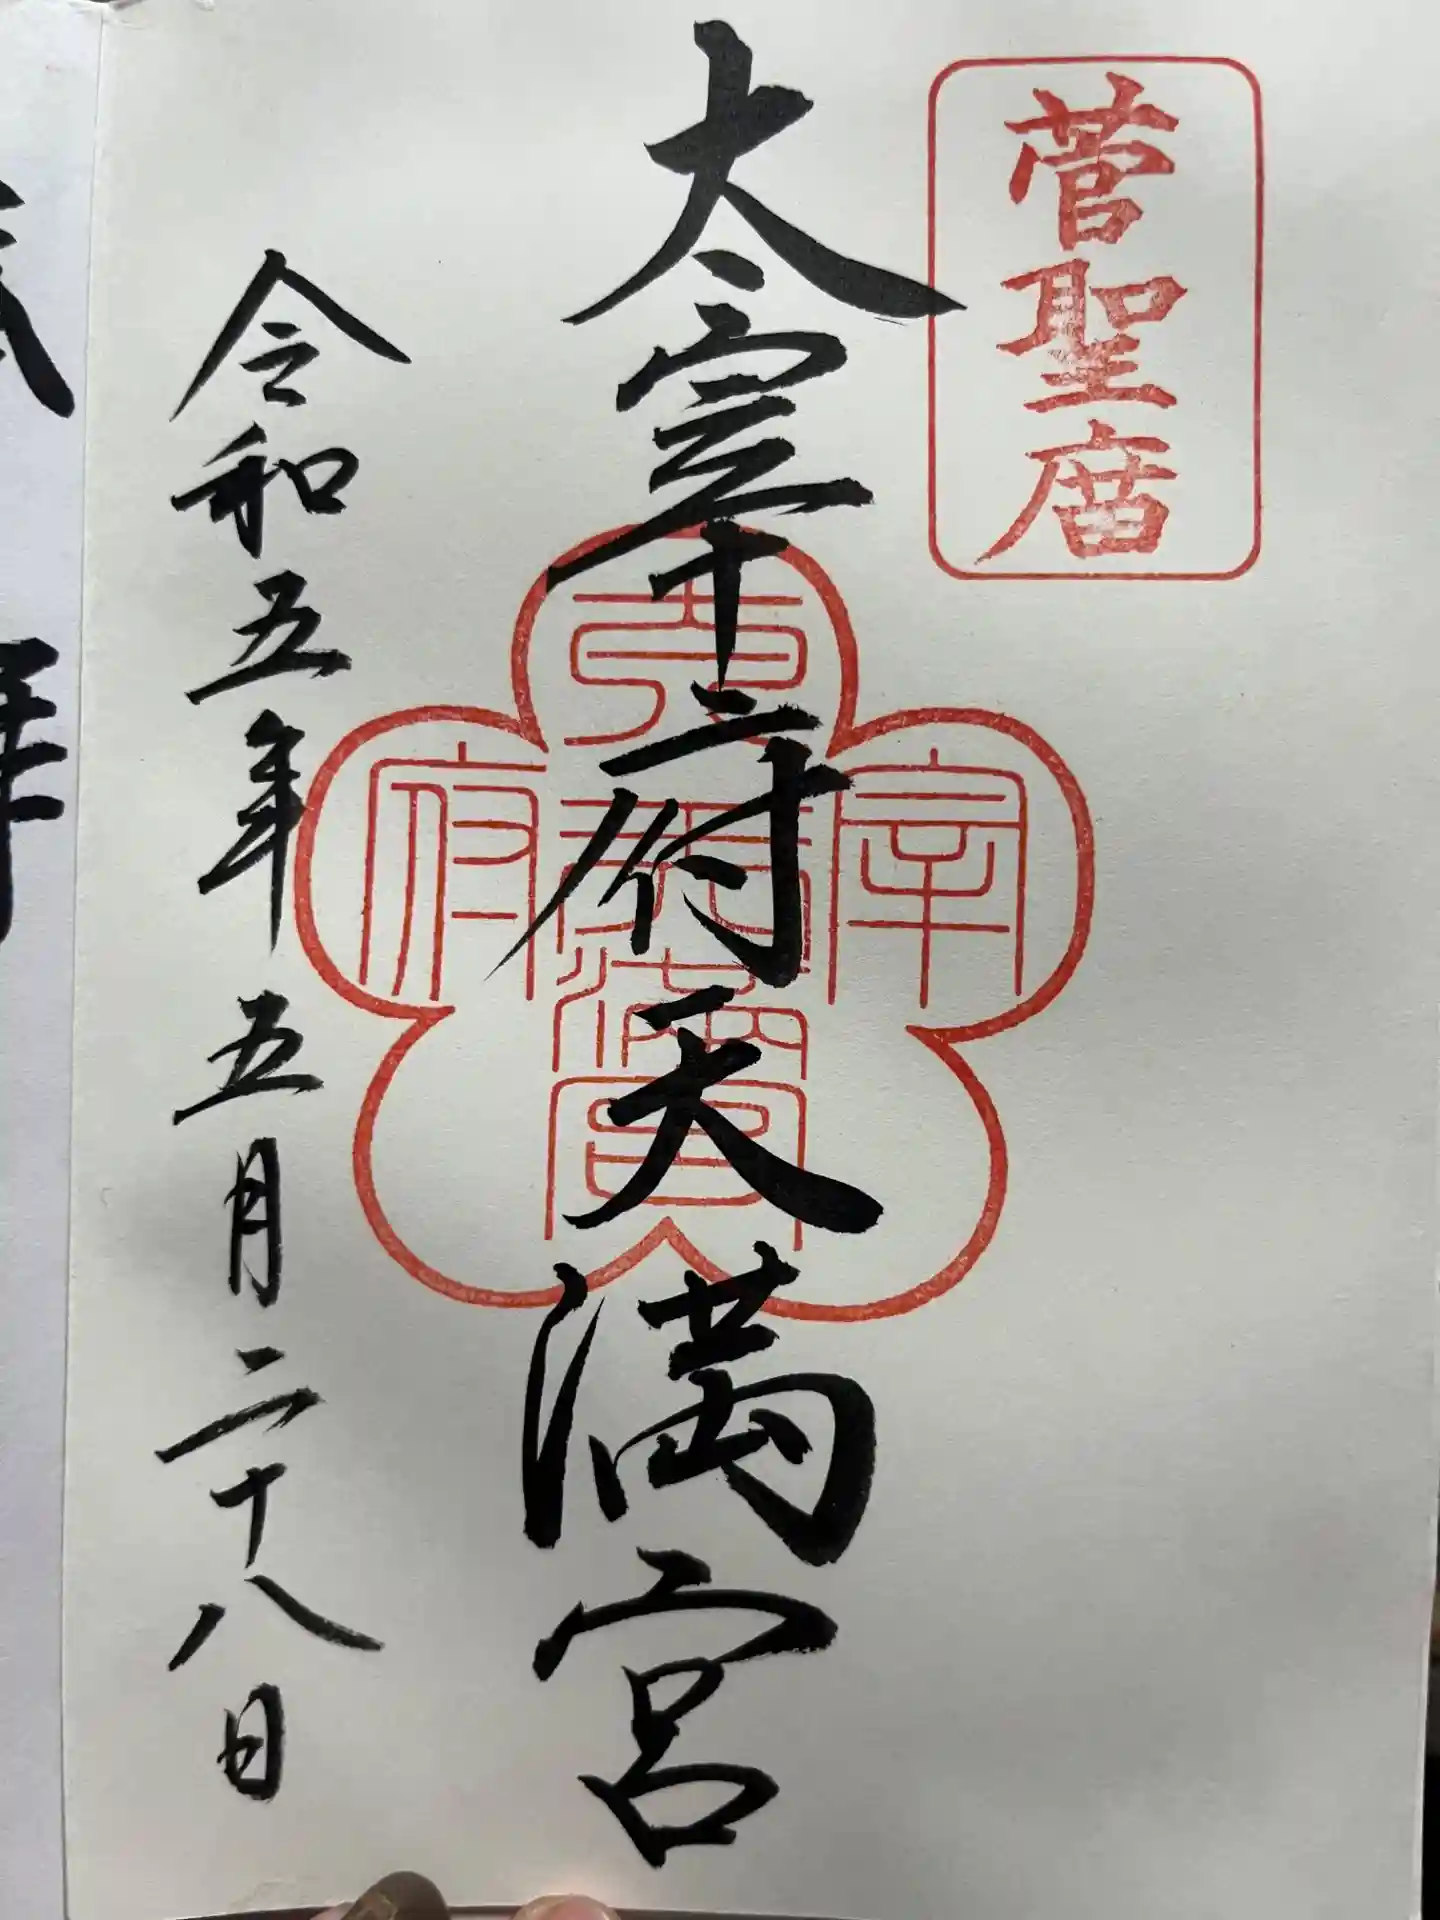 菅聖庿
太宰府天満宮
太
宰
府
天満宮
令和五年五月二十八日